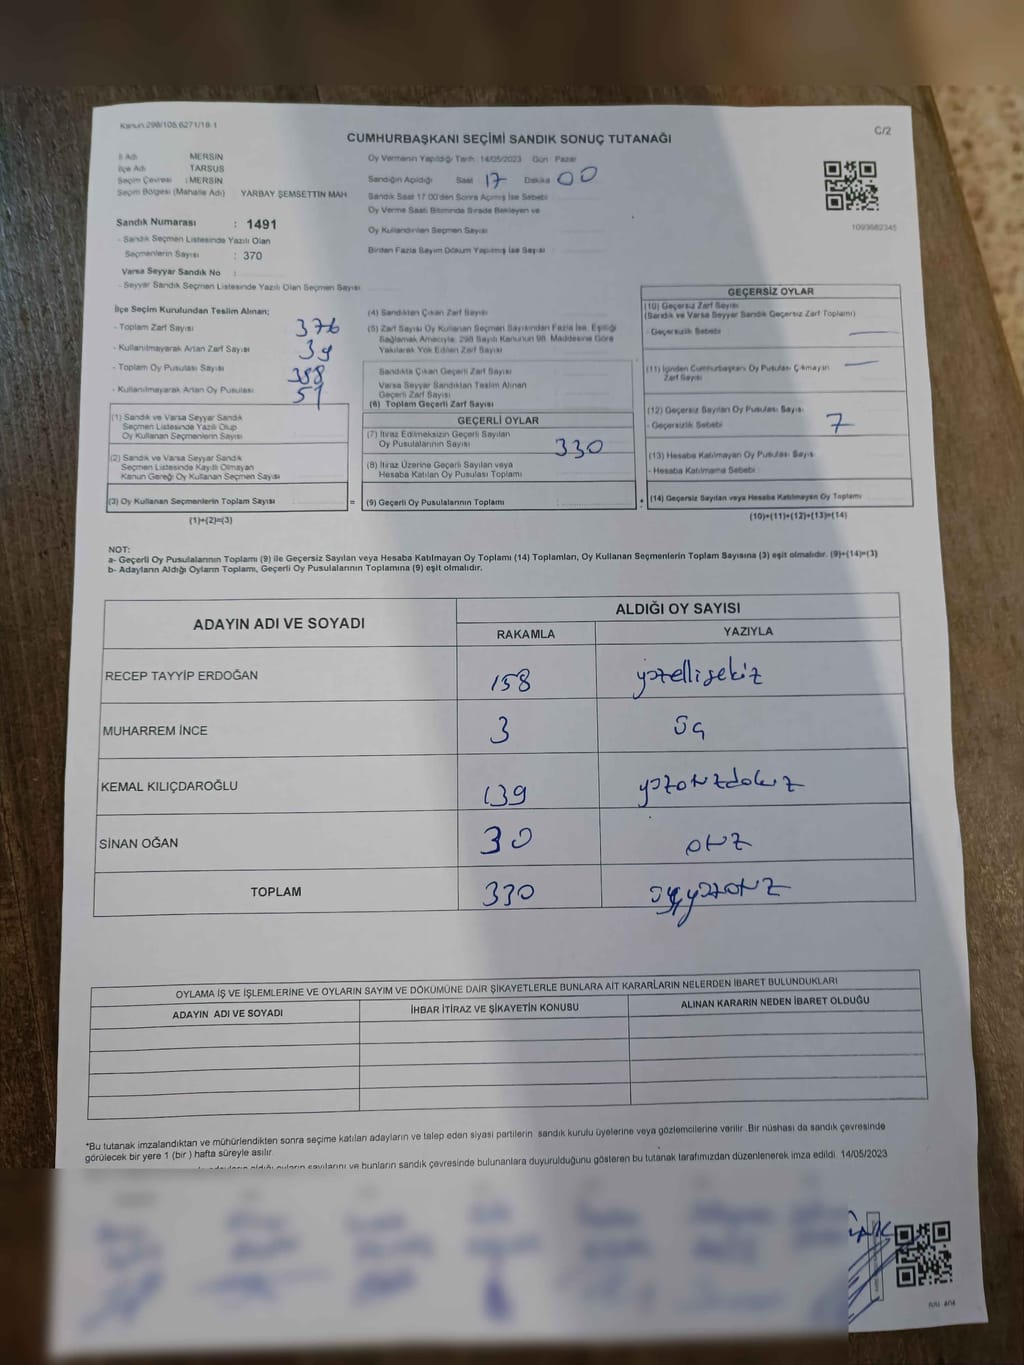 Kanun:298/105,6271/18-1
C/2
CUMHURBAŞKANI SEÇİMİ SANDIK SONUÇ TUTANAĞI
İl Adı MERSIN
İlçe Adı TARSUS
Seçim Çevresi : MERSIN
Seçim Bölgesi (Mahalle Adı) YARBAY ŞEMSETTIN MAH
Sandık Numarası : 1491
- Sandık Seçmen Listesinde Yazılı Olan
Seçmenlerin Sayısı : 370
Varsa Seyyar Sandık No :
- Seyyar Sandık Seçmen Listesinde Yazılı Olan Seçmen Sayısı
Oy Vermenin Yapıldığı Tarih 14/05/2023 Gün Pazar
Sandığın Açıldığı Saat 17 Dakika 00
Sandık Saat 17.00'den Sonra Açılmış İse Sebebi
Oy Verme Saati Bitiminde Sırada Bekleyen ve
Oy Kullandırılan Seçmen Sayısı
Birden Fazla Sayım Döküm Yapılmış İse Sayısı
1093682345
İlçe Seçim Kurulundan Teslim Alınan;
- Toplam Zarf Sayısı 376
- Kullanılmayarak Artan Zarf Sayısı 39
- Toplam Oy Pusulası Sayısı 388
- Kullanılmayarak Artan Oy Pusulası 51
(1) Sandık ve Varsa Seyyar Sandık
Seçmen Listesinde Yazılı Olup
Oy Kullanan Seçmenlerin Sayısı
(2) Sandık ve Varsa Seyyar Sandık
Seçmen Listesinde Kayıtlı Olmayan
Kanun Gereği Oy Kullanan Seçmen Sayısı
(3) Oy Kullanan Seçmenlerin Toplam Sayısı
(1)+(2)=(3)
(4) Sandıktan Çıkan Zarf Sayısı
(5) Zarf Sayısı Oy Kullanan Seçmen Sayısından Fazla İse, Eşitliği
Sağlamak Amacıyla; 298 Sayılı Kanunun 98. Maddesine Göre
Yakılarak Yok Edilen Zarf Sayısı
Sandıkta Çıkan Geçerli Zarf Sayısı
Varsa Seyyar Sandıktan Teslim Alınan
Geçerli Zarf Sayısı
(6) Toplam Geçerli Zarf Sayısı
GEÇERLİ OYLAR
(7) İtiraz Edilmeksizin Geçerli Sayılan
Oy Pusulalarının Sayısı 330
(8) İtiraz Üzerine Geçerli Sayılan veya
Hesaba Katılan Oy Pusulası Toplamı
= (9) Geçerli Oy Pusulalarının Toplamı +
GEÇERSİZ OYLAR
(10) Geçersiz Zarf Sayısı
(Sandık ve Varsa Seyyar Sandık Geçersiz Zarf Toplamı)
- Geçersizlik Sebebi
(11) İçinden Cumhurbaşkanı Oy Pusulası Çıkmayan
Zarf Sayısı
(12) Geçersiz Sayılan Oy Pusulası Sayısı
- Geçersizlik Sebebi 7
(13) Hesaba Katılmayan Oy Pusulası Sayısı
- Hesaba Katılmama Sebebi
(14) Geçersiz Sayılan veya Hesaba Katılmayan Oy Toplamı
(10)+(11)+(12)+(13)=(14)
NOT:
a- Geçerli Oy Pusulalarının Toplamı (9) ile Geçersiz Sayılan veya Hesaba Katılmayan Oy Toplamı (14) Toplamları, Oy Kullanan Seçmenlerin Toplam Sayısına (3) eşit olmalıdır. (9)+(14)=(3)
b- Adayların Aldığı Oyların Toplamı, Geçerli Oy Pusulalarının Toplamına (9) eşit olmalıdır.
ADAYIN ADI VE SOYADI
ALDIĞI OY SAYISI
RAKAMLA YAZIYLA
RECEP TAYYİP ERDOĞAN 158 yüzellisekiz
MUHARREM İNCE 3 üç
KEMAL KILIÇDAROĞLU 139 yüzotuzdokuz
SİNAN OĞAN 30 otuz
TOPLAM 330 üçyüzotuz
OYLAMA İŞ VE İŞLEMLERİNE VE OYLARIN SAYIM VE DÖKÜMÜNE DAİR ŞİKAYETLERLE BUNLARA AİT KARARLARIN NELERDEN İBARET BULUNDUKLARI
ADAYIN ADI VE SOYADI İHBAR İTİRAZ VE ŞİKAYETİN KONUSU ALINAN KARARIN NEDEN İBARET OLDUĞU
*Bu tutanak imzalandıktan ve mühürlendikten sonra seçime katılan adayların ve talep eden siyasi partilerin sandık kurulu üyelerine veya gözlemcilerine verilir. Bir nüshası da sandık çevresinde
görülecek bir yere 1 (bir) hafta süreyle asılır.
oyların sayılarını ve bunların sandık çevresinde bulunanlara duyurulduğunu gösteren bu tutanak tarafımızdan düzenlenerek imza edildi. 14/05/2023